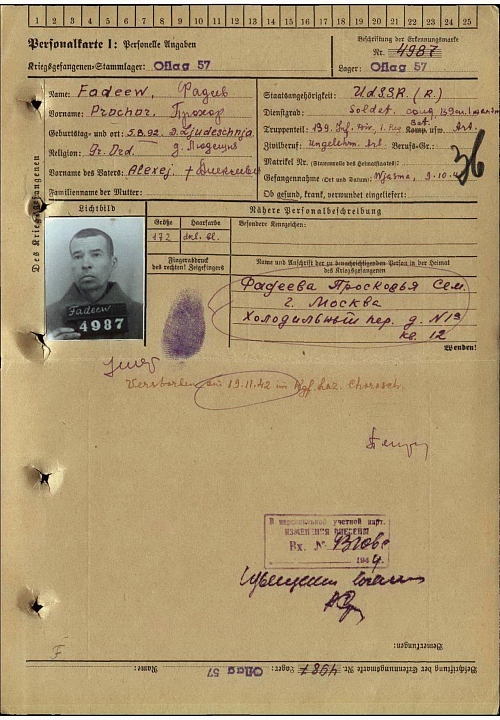 1 2 3 4 5 6 7 8 9 10 11 12 13 14 15 16 17 18 19 20 21 22 23 24 25
Personalkarte I: Personelle Angaben
Kriegsgefangenen-Stammlager: Oflag 57
Beschriftung der Erkennungsmarke
Nr. 4987
Lager: Oflag 57
Des Kriegsgefangenen
Name: Fadeew,
Vorname: Prochor, Прохор
Geburtstag und -ort: 5.8.92. D. Ljudeschnja
Religion: Gr. Ord.
Vorname des Vaters: Alexej
Familienname der Mutter:
Staatsangehörigkeit: UdSSR (R.)
Dienstgrad: Soldat,
Truppenteil: 139. Inf. Komp. usw. Art.
Zivilberuf: Ungelernt. Arb. Berufs-Gr.:
Matrikel Nr. (Stammrolle des Heimatstaates):
Gefangennahme (Ort und Datum): Wjasma, 9.10.4
Ob gesund, krank, verwundet eingeliefert:
36
Lichtbild
Fadeew
4987
Größe
Haarfarbe
172
dkl. bl.
Fingerabdruck
des rechten! Zeigefingers
Nähere Personalbeschreibung
Besondere Kennzeichen:
Name und Anschrift der zu benachrichtigenden Person in der Heimat
des Kriegsgefangenen
Фадеева Просковья Сем.
г. Москва
Холодильный пер. д. N 13
кв. 12
Wenden!
Verstorben am 19.11.42 im Kgf. Laz. Chorosch.
В персональной учетной карт.
ИЗМЕНЕНИЯ ВНЕСЕНЫ
Вх. №
194
Bemerkungen:
F
Beschriftung der Erkennungsmarke Nr. 4987 Lager: Oflag 57
Name: